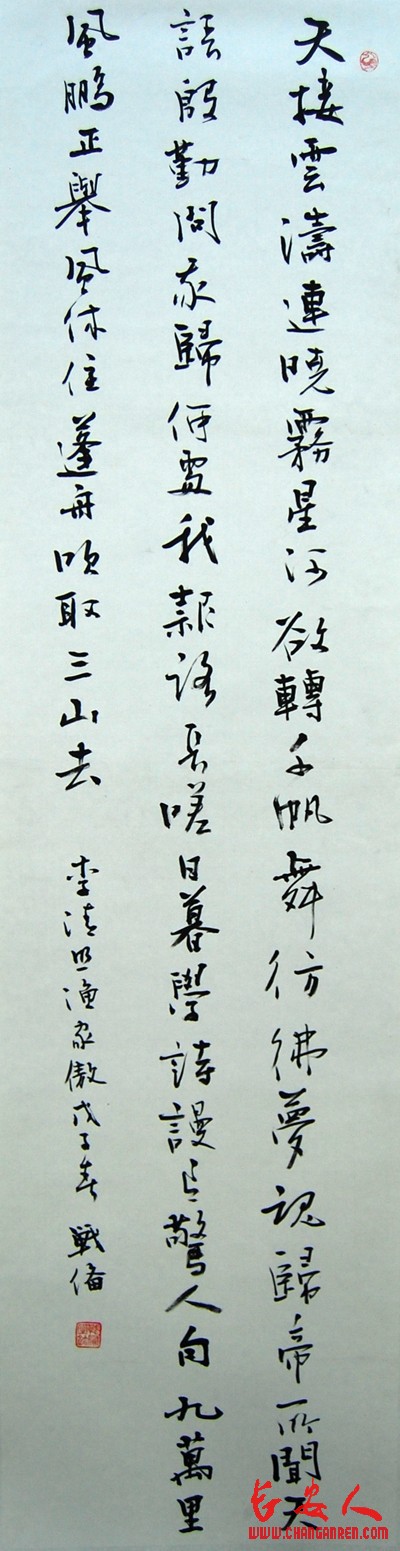 天接雲濤連曉霧星河欲轉千帆舞彷彿夢魂歸帝所聞天
語殷勤問我歸何處我報路長嗟日暮學詩謾有驚人句九萬里
風鵬正舉風休住蓬舟吹取三山去
李清照漁家傲戊子春 戰備
长安人
WWW.CHANGANREN.COM